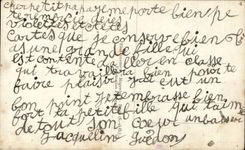 cher petit papa je me porte bien je
cartes que je conserve bien
as une grande fille qui
est contente d'aller en classe
qui travaillera bien pour te
faire plaisir j'ai eut un
bon point je t'embrasse bien
fort ta petite fille qui t'aime
de tout son coeur
Jacqueline Guédon